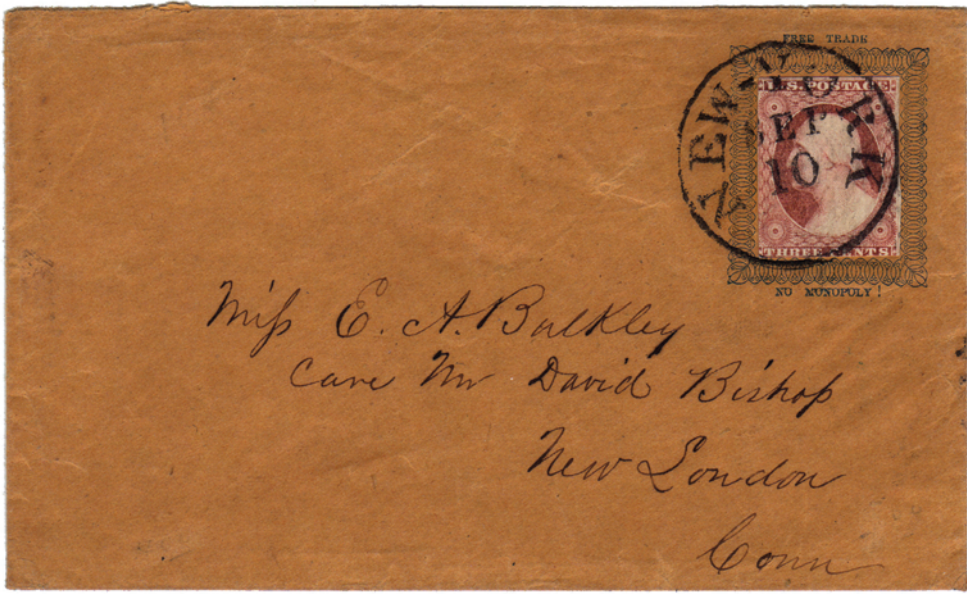 FREE TRADE
NEW-YORK
SEP
10
U.S. POSTAGE
THREE CENTS
NO MONOPOLY!
Miss E. A. Bulkley
Care Mr David Bishop
New London
Conn